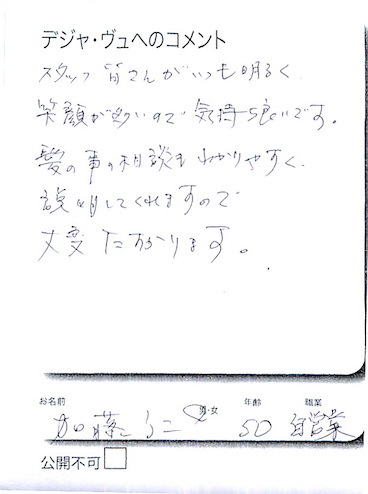 デジャ・ヴュへのコメント
スタッフ皆さんがいつも明るく
笑顔が多いので気持ち良いです。
髪の事の相談もわかりやすく、
説明してくれますので
大変たすかります。
お名前 男・女 年齢 職業
加藤 50 自営業
公開不可